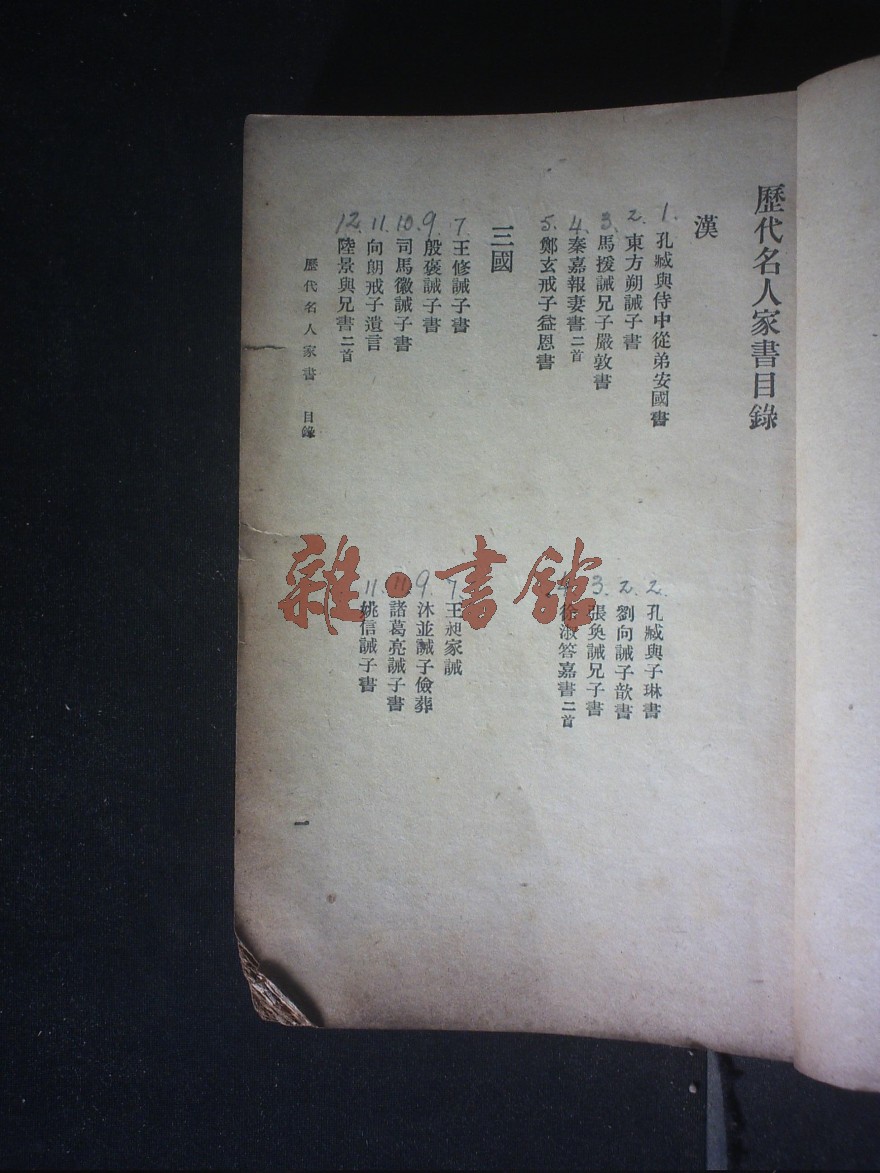 歷代名人家書目錄
漢
1. 孔臧與侍中從弟安國書
2. 孔臧與子琳書
2. 東方朔誡子書
2. 劉向誡子歆書
3. 馬援誡兄子嚴敦書
3. 張奐誡兄子書
4. 秦嘉報妻書二首
徐淑答嘉書二首
5. 鄭玄戒子益恩書
三國
7. 王修誡子書
7. 王昶家誡
9. 殷褒誡子書
9. 沐並誡子儉葬
10. 司馬徽誡子書
11 諸葛亮誡子書
11. 向朗戒子遺言
11. 姚信誡子書
12. 陸景與兄書二首
歷代名人家書 目錄
一
雜·書館